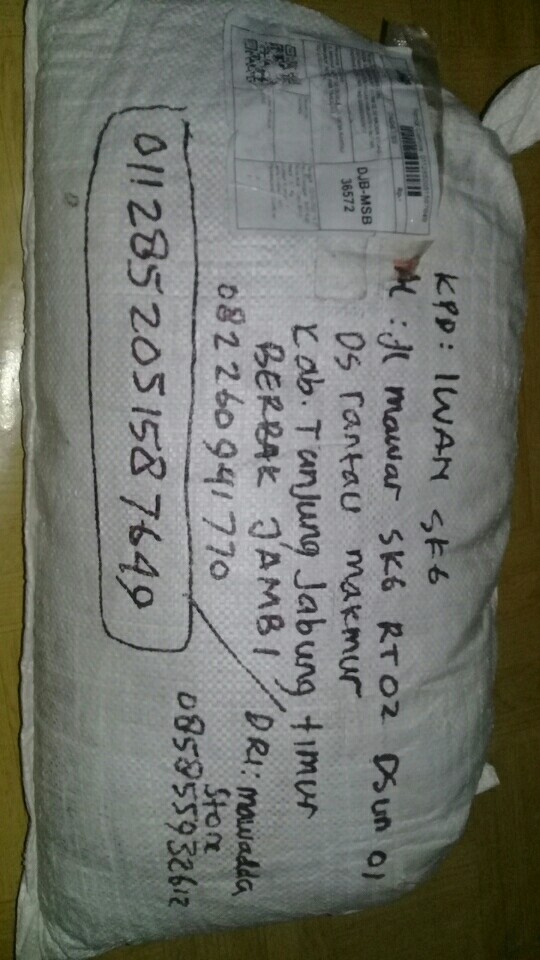 DJB-MSB
36572
KPD: IWAN SK6
Al: Jl mawar SK6 RT02 DSun 01
DS rantau makmur
Kab. Tanjung Jabung timur
BERBAK JAMBI
082260941770
011285205158764,0
DRI: mawadda
Store
085855932612